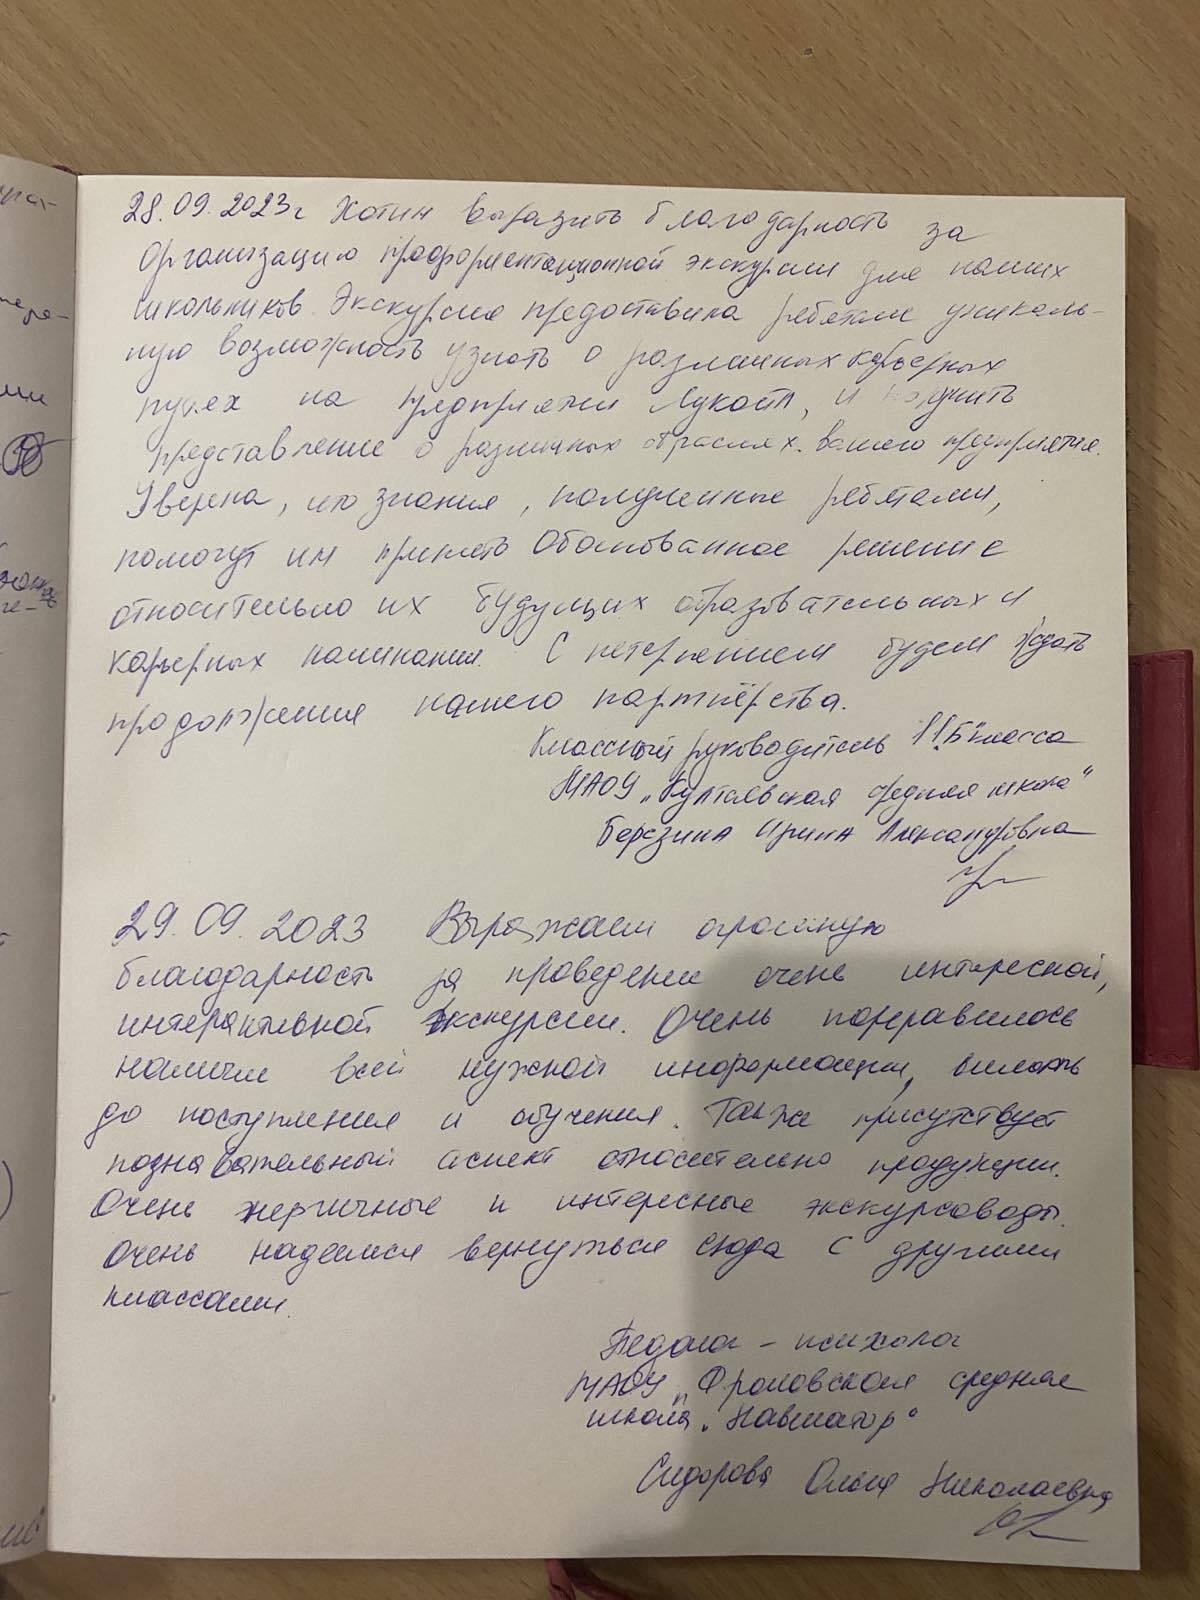 28.09.2023г Хотим выразить благодарность за
Организацию профориентационной экскурсии для наших
школьников. Экскурсия предоставила ребятам уникаль-
ную возможность узнать о различных карьерных
путях на предприятии Лукойл, и получить
представление о различных отраслях вашего предприятия.
Уверена, что знания, полученные ребятами,
помогут им принять обоснованное решение
относительно их будущих образовательных и
карьерных начинаний. С нетерпением будем ждать
продолжения нашего партнёрства.
Классный руководитель 11"Б" класса
МАОУ „Култаевская средняя школа"
Березина Ирина Александровна
29.09.2023 Выражаем огромную
благодарность за проведение очень интересной,
интерактивной экскурсии. Очень понравилось
наличие всей нужной информации, вплоть
до поступления и обучения. Также присутствует
познавательный аспект относительно продукции.
Очень энергичные и интересные экскурсоводы.
Очень надеемся вернуться сюда с другими
классами.
Педагог - психолог
МАОУ „Фроловская средняя
школа „Навигатор"
Сидорова Ольга Николаевна